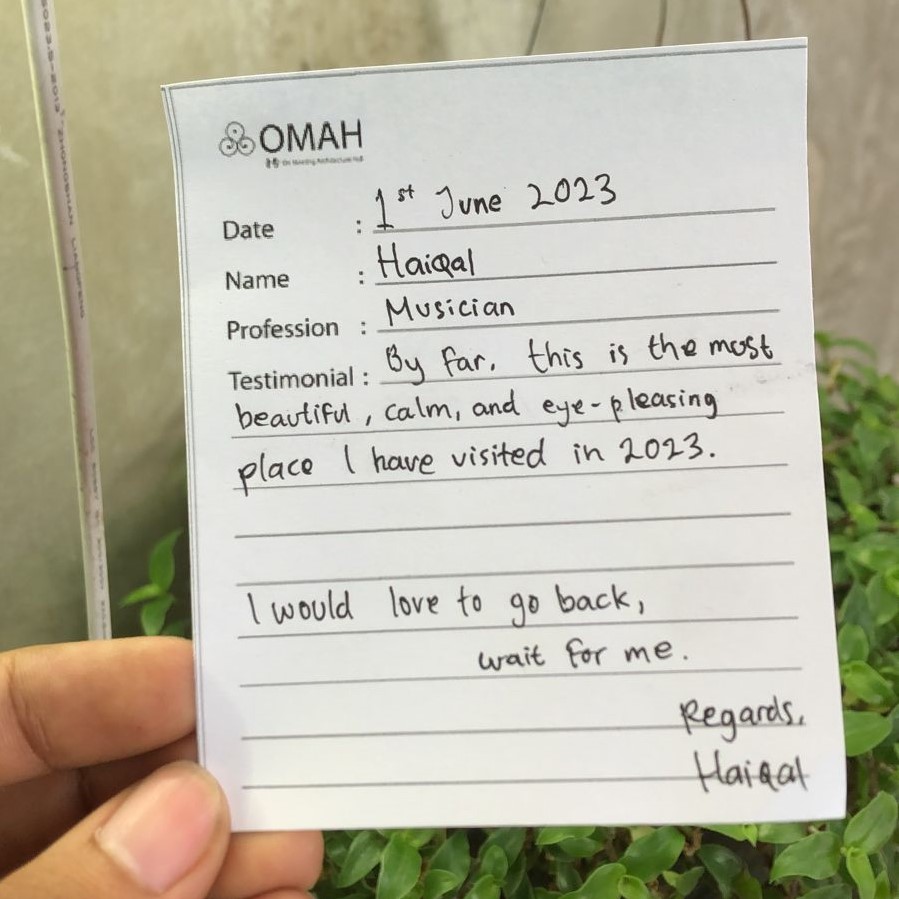 OMAH
Date : 1st June 2023
Name : Haiqal
Profession : Musician
Testimonial : By far, this is the most
beautiful, calm, and eye-pleasing
place I have visited in 2023.
I would love to go back,
wait for me.
Regards,
Haiqal